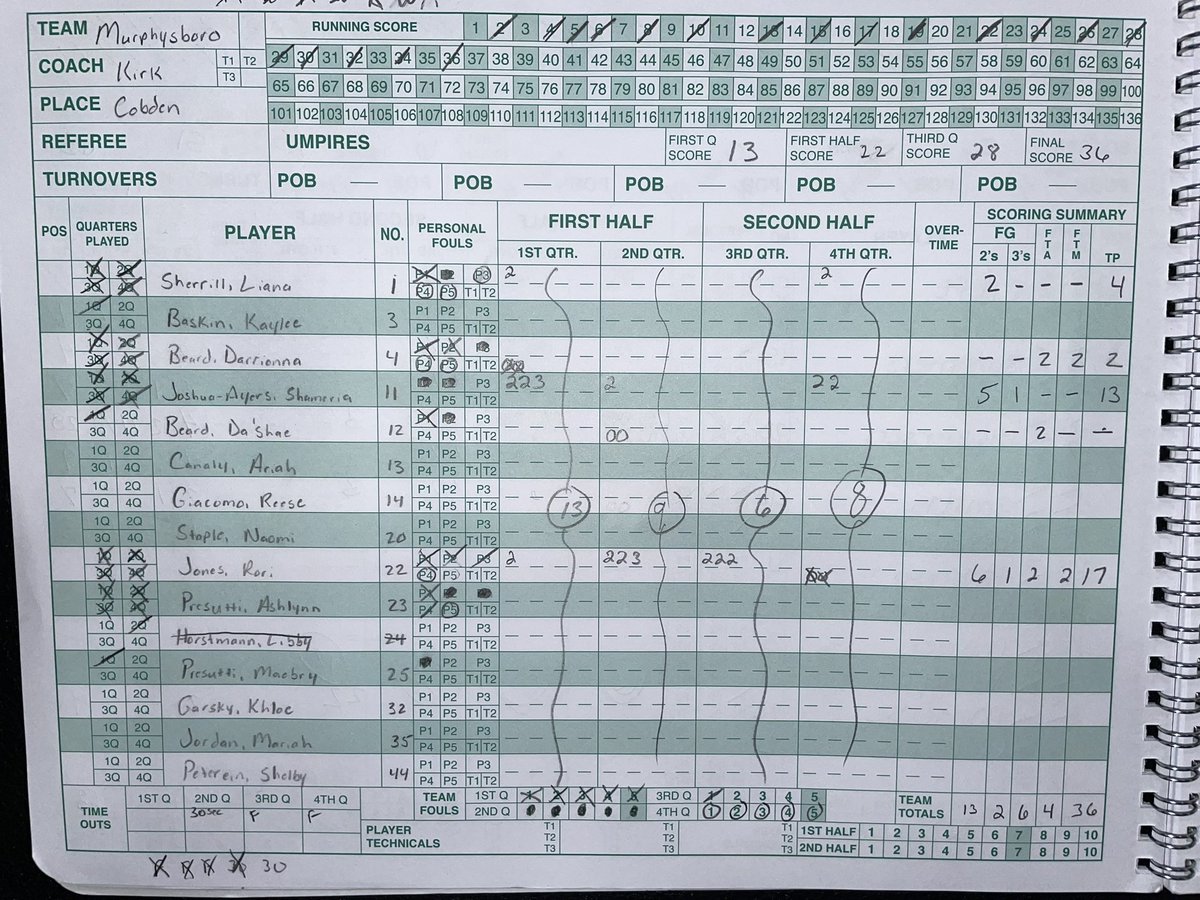 TEAM Murphysboro RUNNING SCORE 1 2 3 4 5 6 7 8 9 10 11 12 13 14 15 16 17 18 19 20 21 22 23 24 25 26 27 28
COACH Kirk T1 T2 T3 29 30 31 32 33 34 35 36 37 38 39 40 41 42 43 44 45 46 47 48 49 50 51 52 53 54 55 56 57 58 59 60 61 62 63 64
65 66 67 68 69 70 71 72 73 74 75 76 77 78 79 80 81 82 83 84 85 86 87 88 89 90 91 92 93 94 95 96 97 98 99 100
PLACE Cobden 101 102 103 104 105 106 107 108 109 110 111 112 113 114 115 116 117 118 119 120 121 122 123 124 125 126 127 128 129 130 131 132 133 134 135 136
REFEREE UMPIRES FIRST Q SCORE 13 FIRST HALF SCORE 22 THIRD Q SCORE 28 FINAL SCORE 36
TURNOVERS POB — POB — POB — POB — POB —
POS QUARTERS PLAYED PLAYER NO. PERSONAL FOULS FIRST HALF SECOND HALF OVER-TIME SCORING SUMMARY
1ST QTR. 2ND QTR. 3RD QTR. 4TH QTR. FG 2's 3's FTA FTM TP
Sherrill, Liana 1 P3 P4 P5 T1 T2 2 2 2 - - - 4
1Q 2Q 3Q 4Q Baskin, Kaylee 3 P1 P2 P3 P4 P5 T1 T2
Beard, Darrionna 4 P4 P5 T1 T2 - - 2 2 2
Joshua-Ayers, Shameria 11 P3 P4 P5 T1 T2 223 2 22 5 1 - - 13
1Q 2Q 3Q 4Q Beard, Da'shae 12 P3 P4 P5 T1 T2 00 - - 2 - -
1Q 2Q 3Q 4Q Canaly, Ariah 13 P1 P2 P3 P4 P5 T1 T2
1Q 2Q 3Q 4Q Giacomo, Reese 14 P1 P2 P3 P4 P5 T1 T2 13 9 6 8
1Q 2Q 3Q 4Q Staple, Naomi 20 P1 P2 P3 P4 P5 T1 T2
Jones, Rori 22 P3 P4 P5 T1 T2 2 223 222 6 1 2 2 17
Presutti, Ashlynn 23 P4 P5 T1 T2
1Q 2Q 3Q 4Q Horstmann, Libby 24 P1 P2 P3 P4 P5 T1 T2
1Q 2Q 3Q 4Q Presutti, Maebry 25 P2 P3 P4 P5 T1 T2
1Q 2Q 3Q 4Q Garsky, Khloe 32 P1 P2 P3 P4 P5 T1 T2
1Q 2Q 3Q 4Q Jordan, Mariah 35 P1 P2 P3 P4 P5 T1 T2
1Q 2Q 3Q 4Q Peterein, Shelby 44 P1 P2 P3 P4 P5 T1 T2
TIME OUTS 1ST Q 2ND Q 3RD Q 4TH Q TEAM FOULS 1ST Q 1 2 3 4 5 3RD Q 1 2 3 4 5 TEAM TOTALS 13 2 6 4 36
30sec F F 2ND Q 4TH Q 1 2 3 4 5
PLAYER TECHNICALS T1 T2 T3 T1 T2 T3 T1 T2 T3 1ST HALF 1 2 3 4 5 6 7 8 9 10
2ND HALF 1 2 3 4 5 6 7 8 9 10
30 30